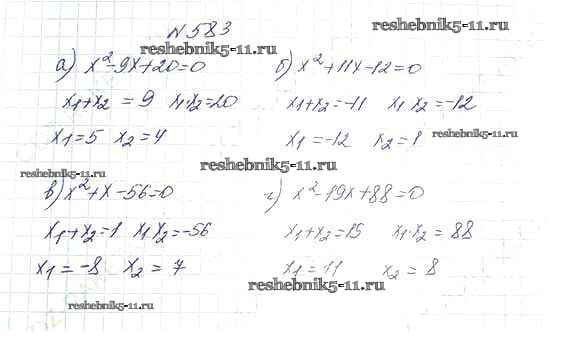 №583
reshebnik5-11.ru
reshebnik5-11.ru
а) x²-9x+20=0 б) x²+11x-12=0
x1+x2 = 9 x1·x2=20 x1+x2=-11 x1 x2=-12
x1=5 x2=4 x1=-12 x2=1
reshebnik5-11.ru
reshebnik5-11.ru
reshebnik5-11.ru
в) x²+x-56=0 г) x²-19x+88=0
x1+x2=1 x1x2=-56 x1+x2=15 x1·x2=88
x1=-8 x2=7 x1=11 x2=8
reshebnik5-11.ru
reshebnik5-11.ru